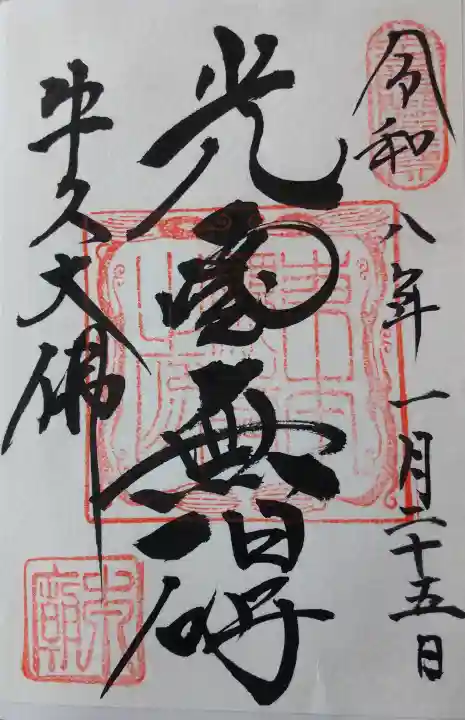 令和八年一月二十五日
光雲無碍
牛久大佛